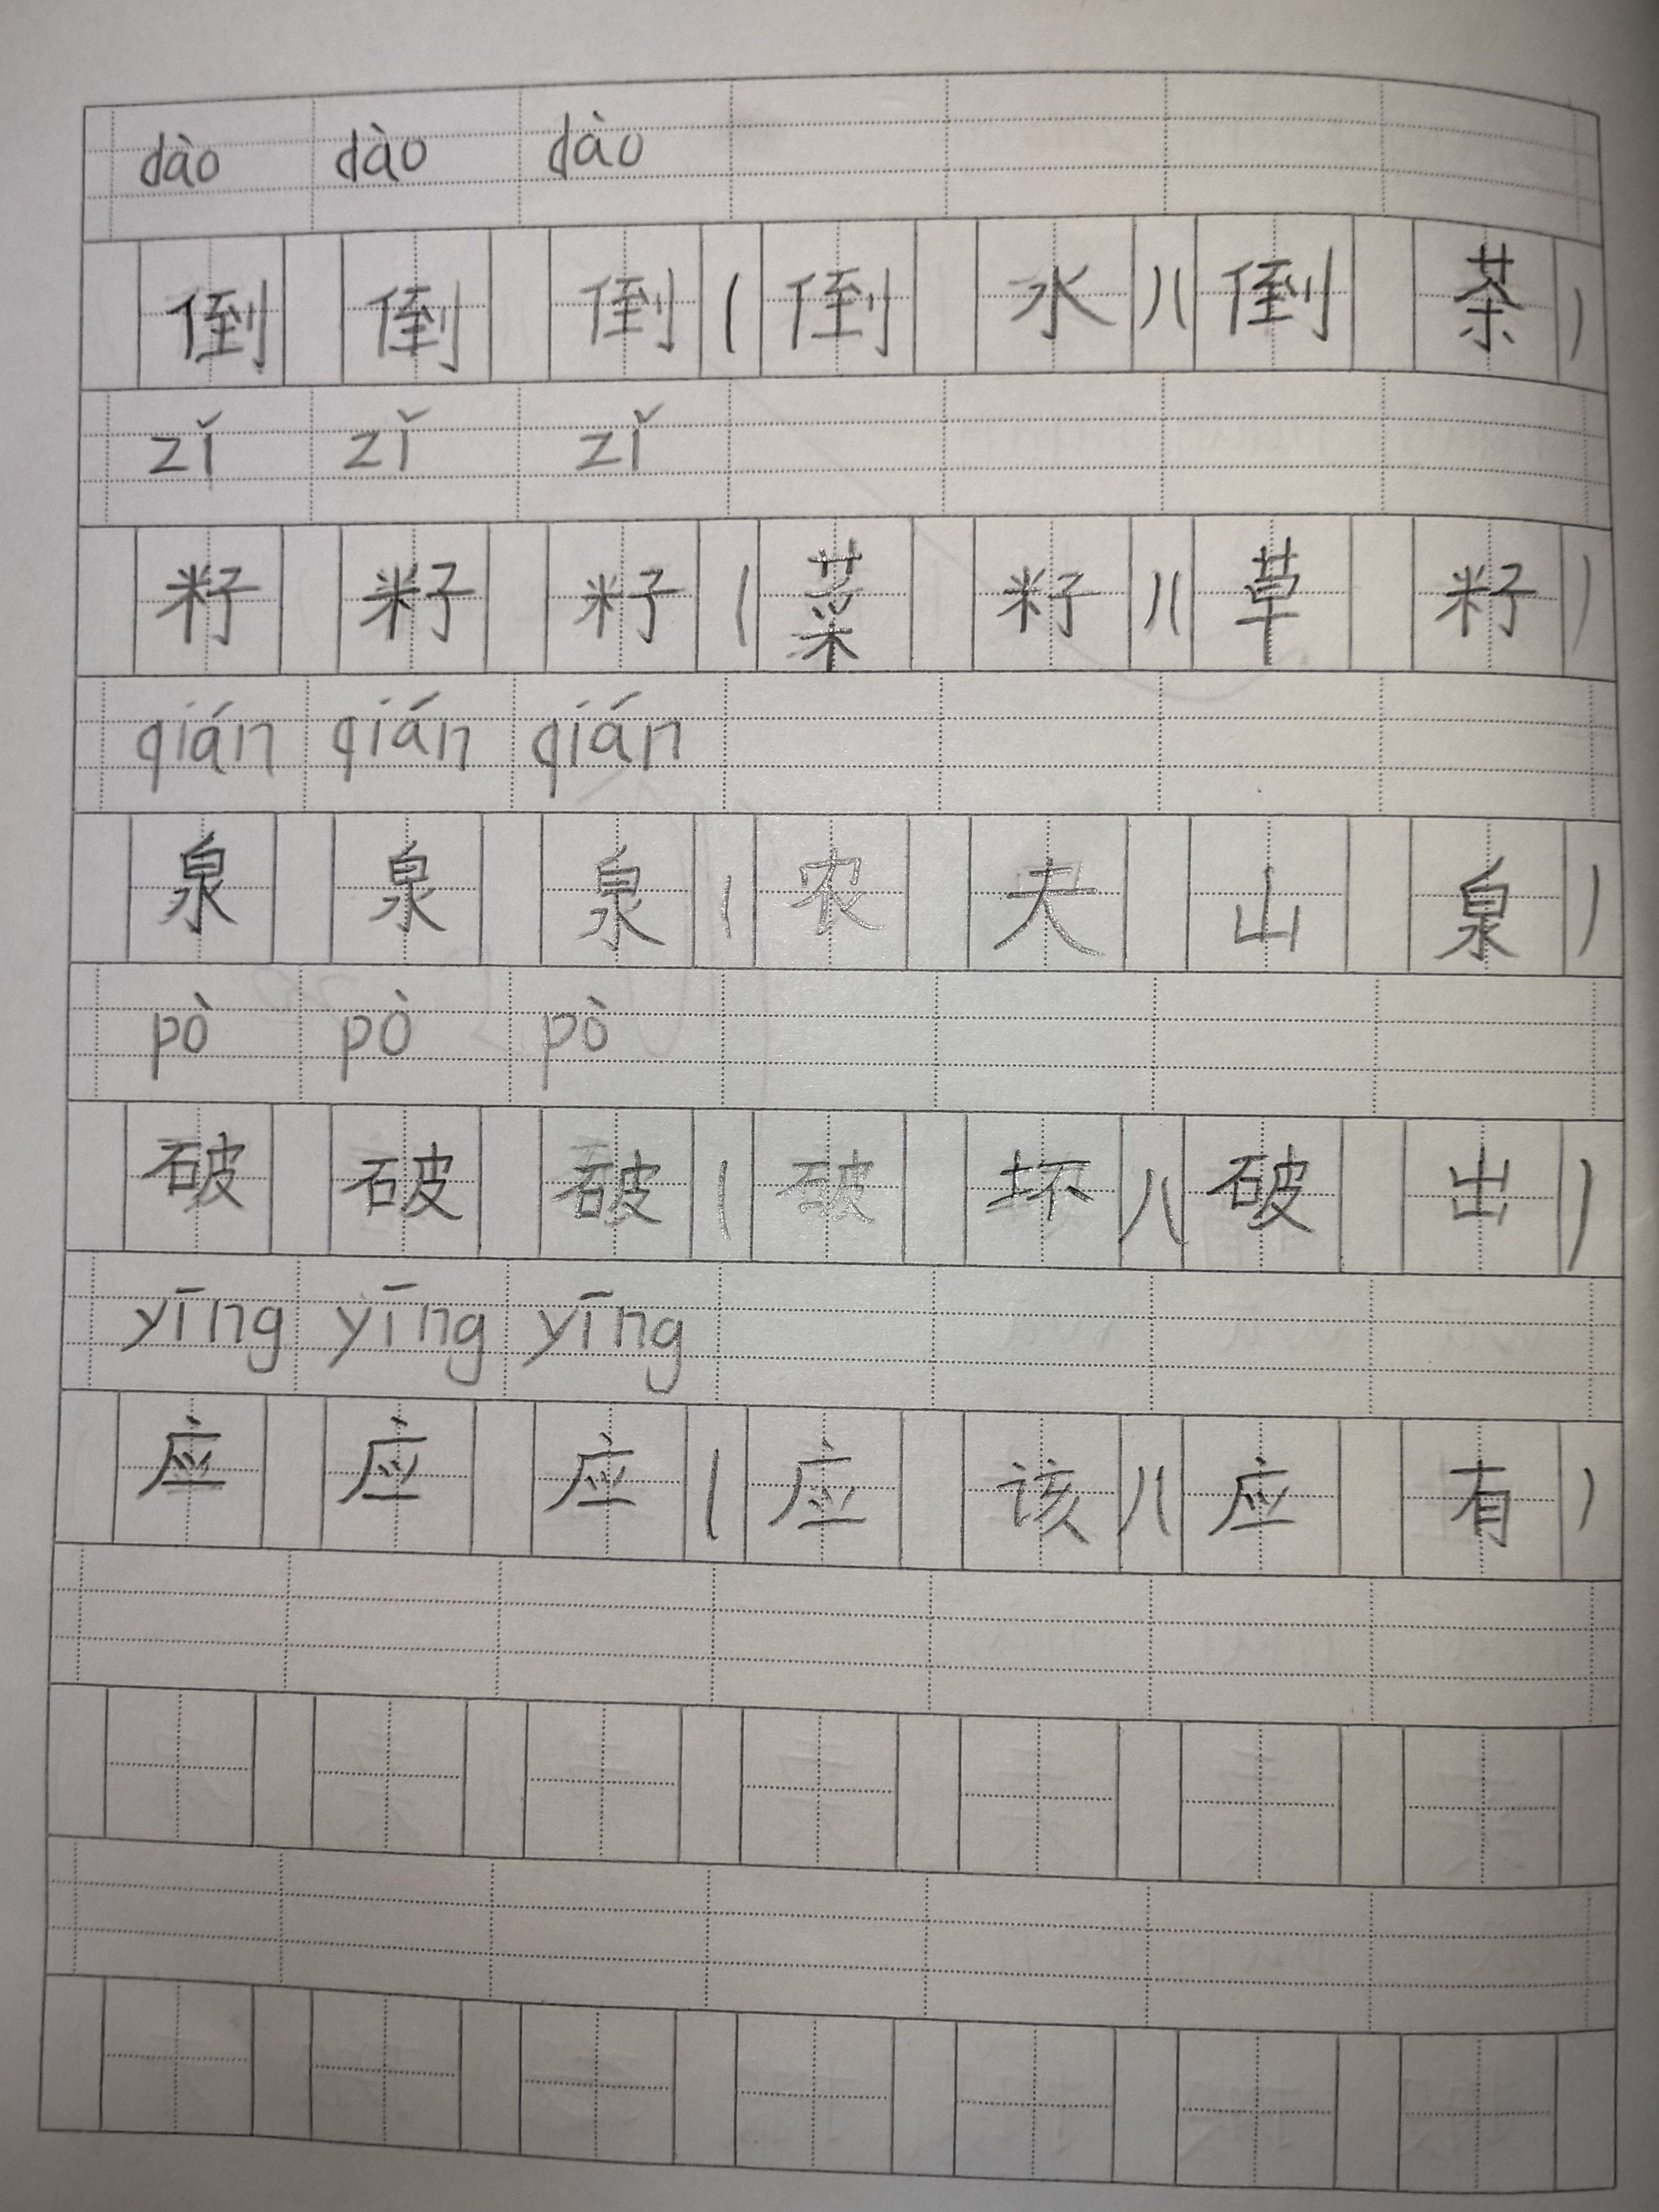 dào dào dào
倒 倒 倒 ( 倒 水 )( 倒 茶 )
zǐ zǐ zǐ
籽 籽 籽 ( 菜 籽 )( 草 籽 )
qián qián qián
泉 泉 泉 ( 农 夫 山 泉 )
pò pò pò
破 破 破 ( 破 坏 )( 破 出 )
yīng yīng yīng
应 应 应 ( 应 该 )( 应 有 )